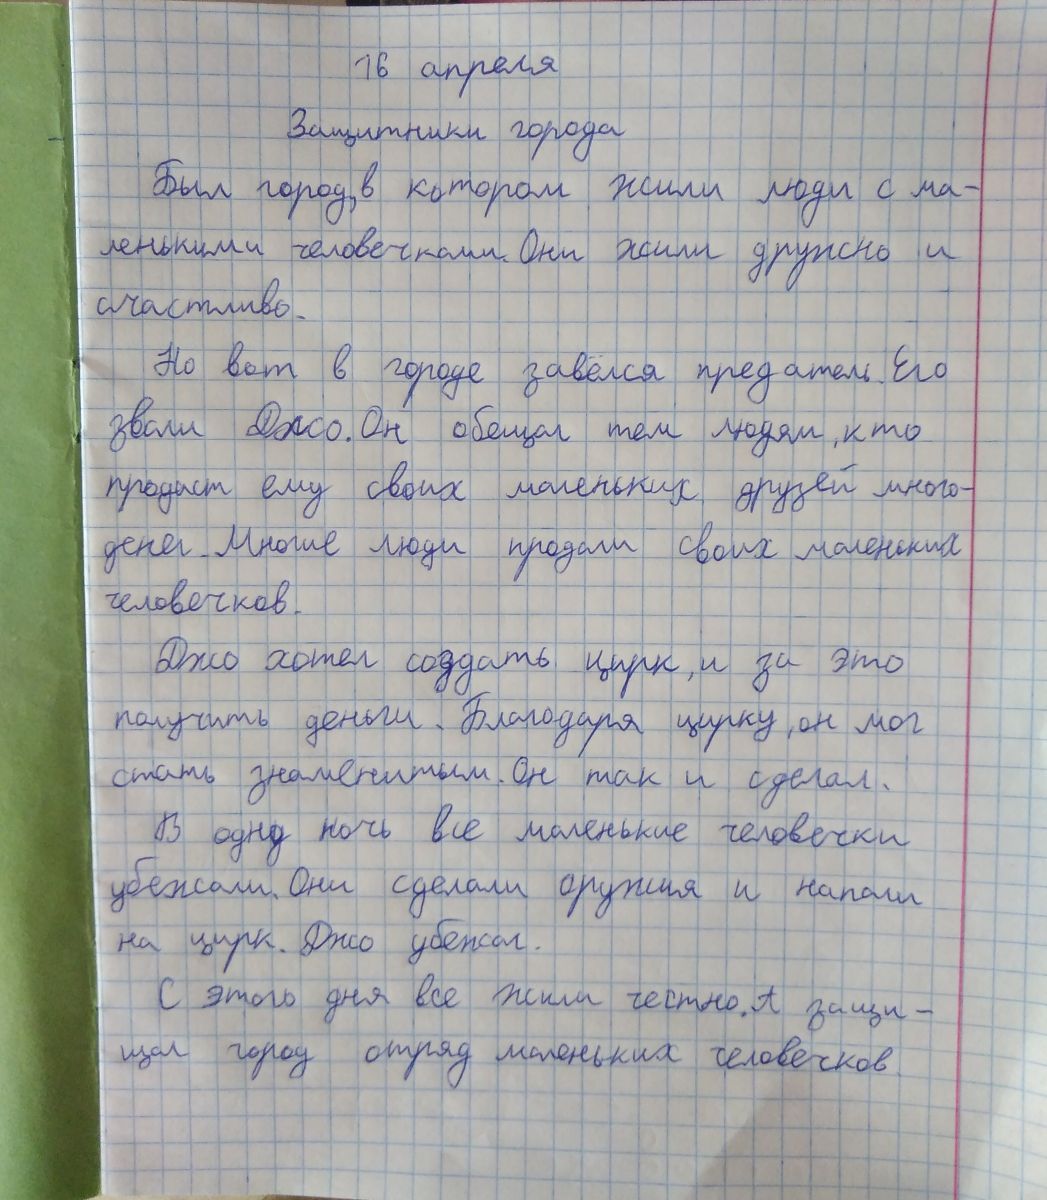 16 апреля
Защитники города
Был город, в котором жили люди с ма-
ленькими человечками. Они жили дружно и
счастливо.
Но вот в городе завёлся предатель. Его
звали Джо. Он обещал тем людям, кто
продаст ему своих маленьких друзей много-
денег. Многие люди продали своих маленьких
человечков.
Джо хотел создать цирк, и за это
получить деньги. Благодаря цирку, он мог
стать знаменитым. Он так и сделал.
В одну ночь все маленькие человечки
убежали. Они сделали оружия и напали
на цирк. Джо убежал.
С этого дня все жили честно. А защи-
щал город отряд маленьких человечков